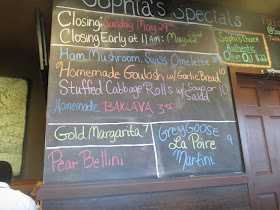 Sophia's Specials
Closing: Sunday May 29th
Closing Early at 11am: May 22nd
Ham, Mushroom, Swiss Omelette
Homemade Goulash w/ Garlic Bread 10
Stuffed Cabbage Rolls w/ Soup or Salad 10
Homemade BAKLAVA 3.95
Gold Margarita 7
Pear Bellini
Grey Goose
La Poire
Martini
9
Sophia's Choice
Authentic
Olive Oil